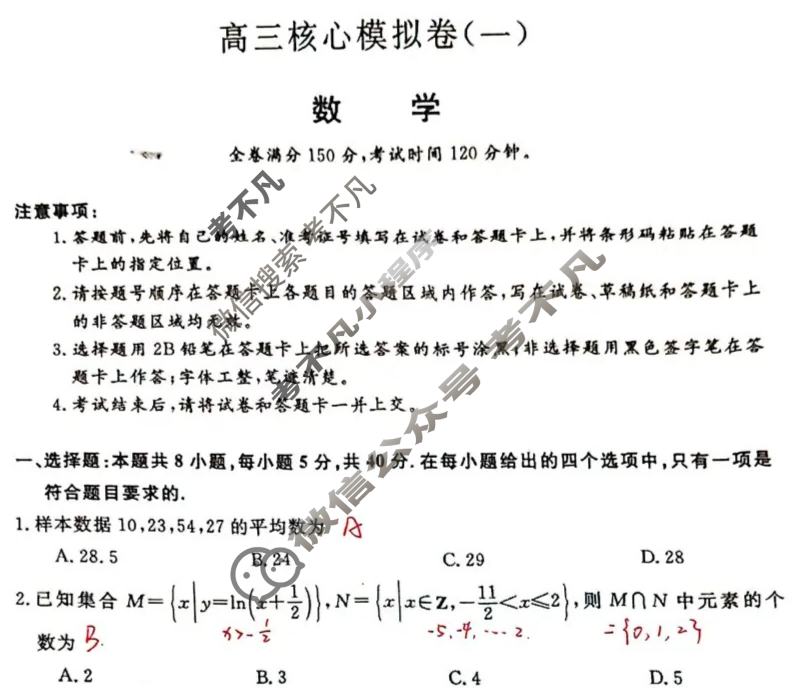 高三核心模拟卷(一)
数 学
全卷满分 150 分,考试时间 120 分钟。
注意事项:
1. 答题前,先将自己的姓名、准考证号填写在试卷和答题卡上,并将条形码粘贴在答题
卡上的指定位置。
2. 请按题号顺序在答题卡上各题目的答题区域内作答,写在试卷、草稿纸和答题卡上
的非答题区域均无效。
3. 选择题用 2B 铅笔在答题卡上把所选答案的标号涂黑;非选择题用黑色签字笔在答
题卡上作答;字体工整,笔迹清楚。
4. 考试结束后,请将试卷和答题卡一并上交。
一、选择题:本题共 8 小题,每小题 5 分,共 40 分. 在每小题给出的四个选项中,只有一项是
符合题目要求的.
1. 样本数据 10,23,54,27 的平均数为 A
A. 28.5 B. 24 C. 29 D. 28
2. 已知集合 M={x|y=ln(x+1/2)},N={x|x∈Z,-11/2<x≤2},则 M∩N 中元素的个
x>-1/2 -5,-4,…2. ={0,1,2}
数为 B.
A. 2 B. 3 C. 4 D. 5
考不凡
微信搜索 考不凡
考不凡小程序
微信公众号 考不凡